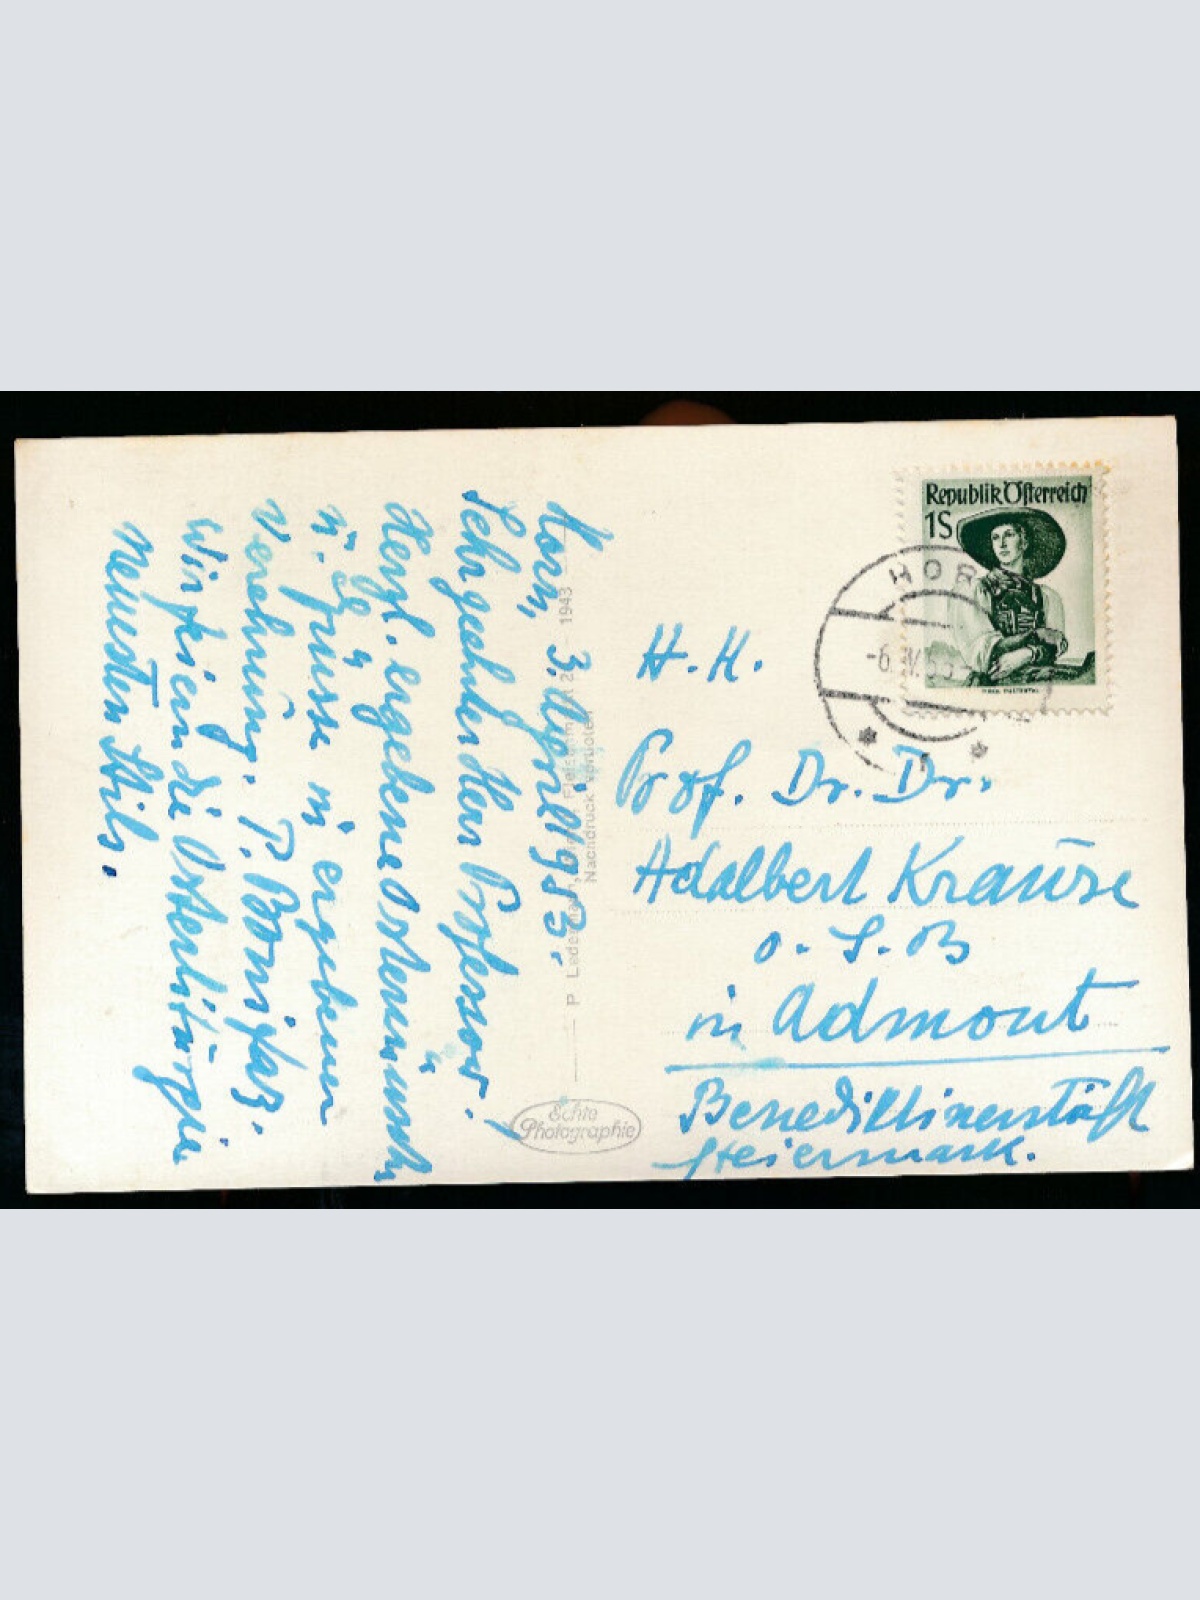 Horn, 3. April 1953.
Sehr geehrter Herr Professor!
Herzl. ergebene Osterwünsche
u. Grüsse in ergebener
Verehrung. P. Bonifaz.
Wir feiern die Osterliturgie
neuesten Stils.
P Ledermann, Wien
1943
Nachdruck verboten
Echte
Photographie
Republik Österreich
1S
HOR
-6.IV.53
H. H.
Prof. Dr. Dr.
Adalbert Krause
O. S. B
in Admont
Benediktinerstift
Steiermark.